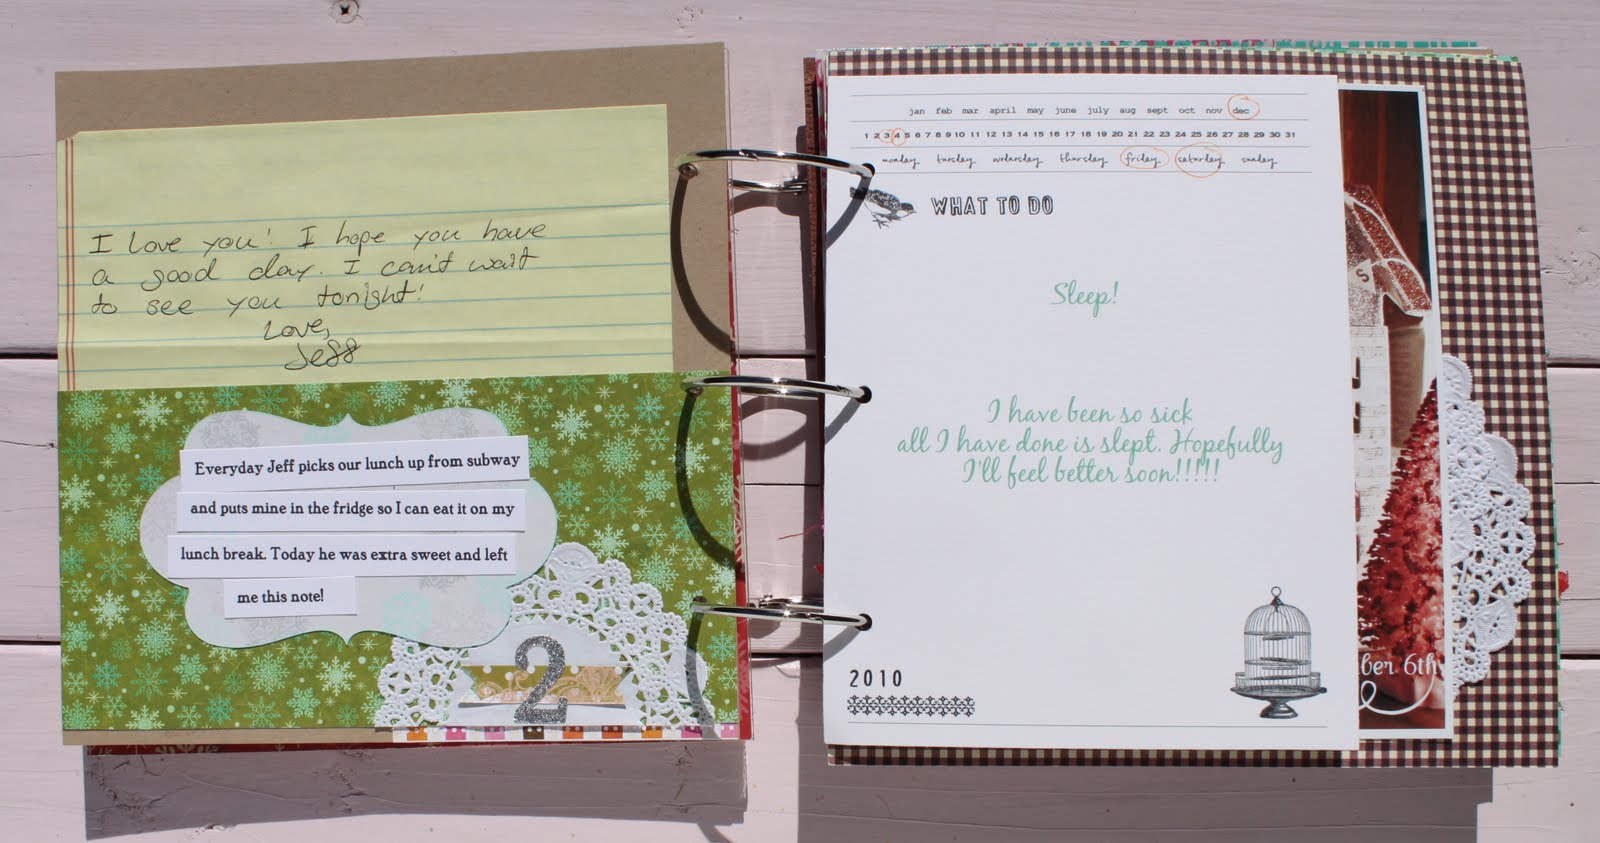 I love you! I hope you have
a good day. I can't wait
to see you tonight!
Love,
Jeff
Everyday Jeff picks our lunch up from subway
and puts mine in the fridge so I can eat it on my
lunch break. Today he was extra sweet and left
me this note!
2
jan feb mar april may june july aug sept oct nov dec
1 2 3 4 5 6 7 8 9 10 11 12 13 14 15 16 17 18 19 20 21 22 23 24 25 26 27 28 29 30 31
monday tuesday wednesday thursday friday saturday sunday
WHAT TO DO
Sleep!
I have been so sick
all I have done is slept. Hopefully
I'll feel better soon!!!!!
2010
S
ber 6th